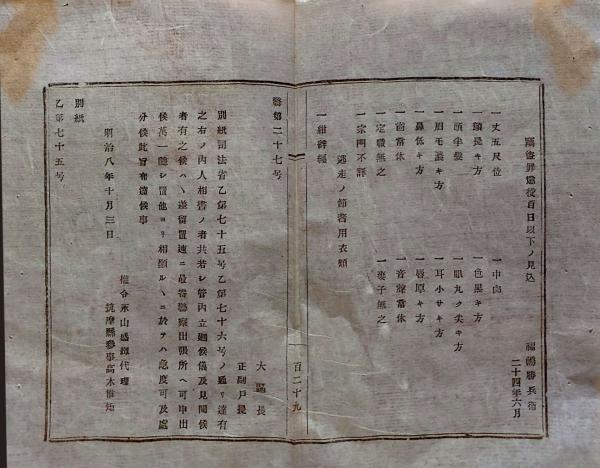 竊盗罪懲役百日以下ノ見込
福嶋勝兵衛
二十四年六月
一丈五尺位
一中肉
一頭長キ方
一色黒キ方
一頭半髪
一眼丸ク尖キ方
一眉毛濃キ方
一耳小サキ方
一鼻低キ方
一唇厚キ方
一歯常体
一音聲常体
一定職無之
一妻子無之
一宗門不詳
逃走ノ節着用衣類
一紺袢纏
百二十九
警第二十七号
大區長
正副戸長
別紙司法省乙第七十五号乙第七十六号ノ通リ達有
之右ノ内人相書ノ者共若シ管内立廻候儀及見聞候
者有之候ハヽ差留置速ニ最寄警察出張所ヘ可申出
候萬一隠シ置他ヨリ相顕ルヽニ於テハ急度可及處
分候此旨布達候事
權令永山盛輝代理
筑摩縣參事高木惟矩
明治八年十月三日
別紙
乙第七十五号